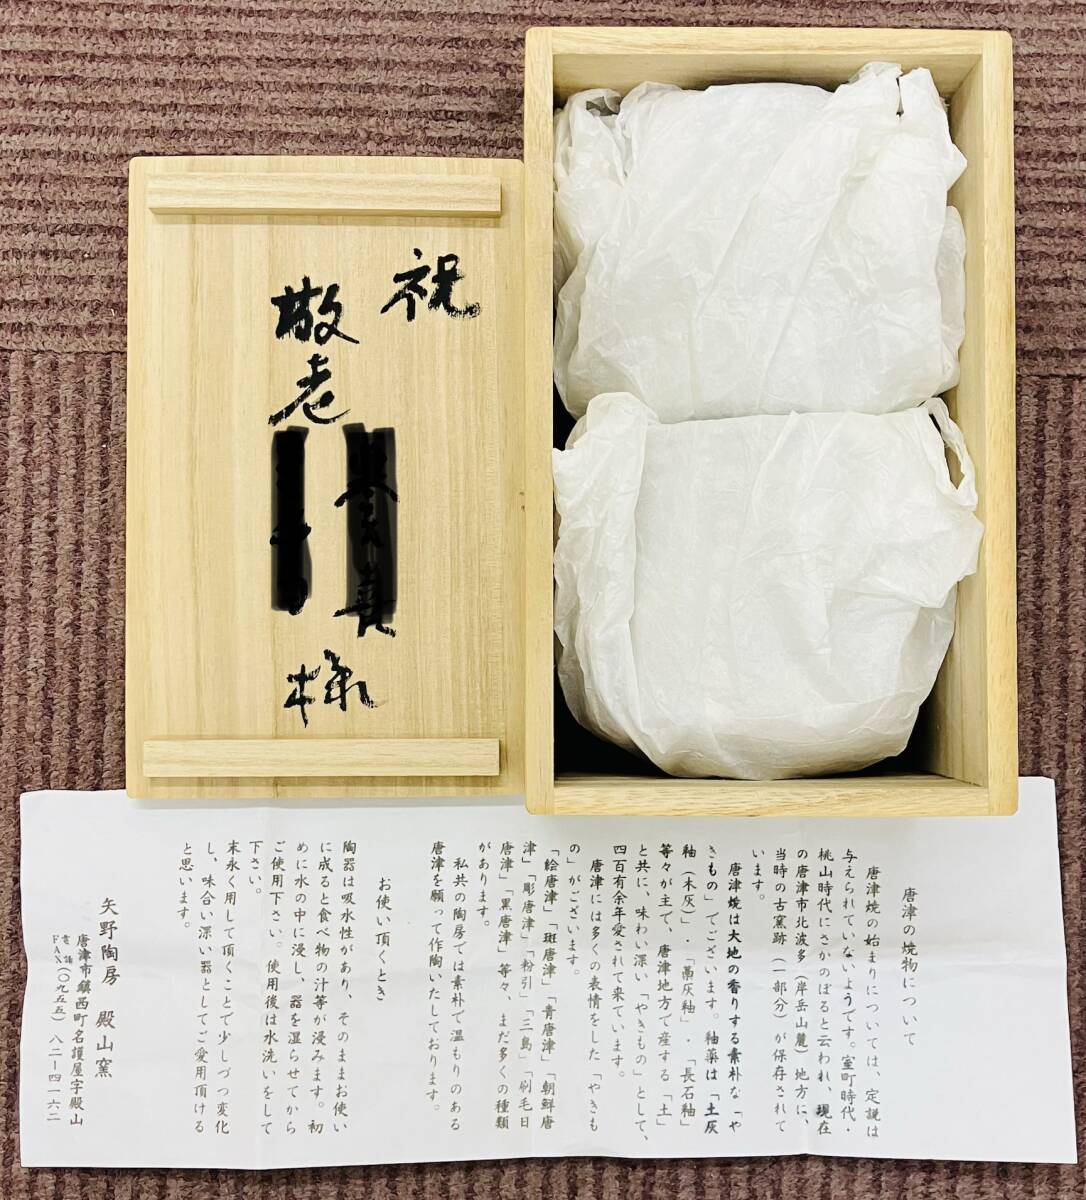 祝
敬老
様
唐津の焼物について
唐津焼の始まりについては、定説は
与えられていないようです。室町時代・
桃山時代にさかのぼると云われ、現在
の唐津市北波多（岸岳山麓）地方に、
当時の古窯跡（一部分）が保存されて
います。
唐津焼は大地の香りする素朴な「や
きもの」でございます。釉薬は「土灰
釉（木灰）」・「藁灰釉」・「長石釉」
等々が主で、唐津地方で産する「土」
と共に、味わい深い「やきもの」として、
四百有余年愛されて来ています。
唐津には多くの表情をした「やきも
の」がございます。
「絵唐津」「斑唐津」「青唐津」「朝鮮唐
津」「彫唐津」「粉引」「三島」「刷毛目
唐津」「黒唐津」等々、まだ多くの種類
があります。
私共の陶房では素朴で温もりのある
唐津を願って作陶いたしております。
お使い頂くとき
陶器は吸水性があり、そのままお使い
に成ると食べ物の汁等が浸みます。初
めに水の中に浸し、器を湿らせてから
ご使用下さい。使用後は水洗いをして
下さい。
末永く用して頂くことで少しづつ変化
し、味合い深い器としてご愛用頂ける
と思います。
矢野陶房 殿山窯
唐津市鎮西町名護屋字殿山
電話
FAX（〇九五五）八二―四一六二